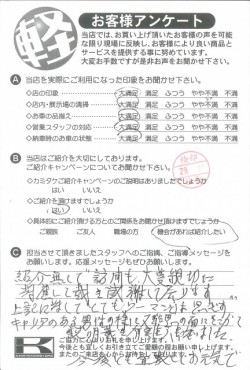 軽
お客様アンケート
当店では、お買い上げ頂いたお客様の声を可能
な限り現場に反映し、お客様により良い商品と
サービスを提供する事に努めています。
大変お手数ですが是非お声をお聞かせ下さい。
A 当店を実際にご利用になった印象をお聞かせ下さい。
◇店の印象 大満足 満足 ふつう やや不満 不満
◇店内・展示場の清掃 大満足 満足 ふつう やや不満 不満
◇お車の品揃え 大満足 満足 ふつう やや不満 不満
◇営業スタッフの対応 大満足 満足 ふつう やや不満 不満
◇納車時のお車の状態 大満足 満足 ふつう やや不満 不満
B 当店はご紹介を大切にしております。
ご紹介キャンペーンについてお聞かせ下さい。
◇カミタケご紹介キャンペーンのご説明はありましたでしょうか
はい いいえ
◇ご紹介を頂けますでしょうか
はい いいえ
◇具体的にご紹介頂ける方とのご関係をお聞かせ頂けますでしょうか
ご親族 ご友人 職場の方 機会があれば紹介したい
C 担当させて頂きましたスタッフへのご指摘、ご要望メッセージを
お願いします。応援メッセージもぜひお願いします。
紹介無しで訪問も大変親切に
上記に関しても
キャリアのある男性の様に
ご協力に心よりお礼を申し上げます。
今後とも宜しくお引き立てご愛顧の程お願い申し上げます。
またのご来店を心からお待ちしております。
K